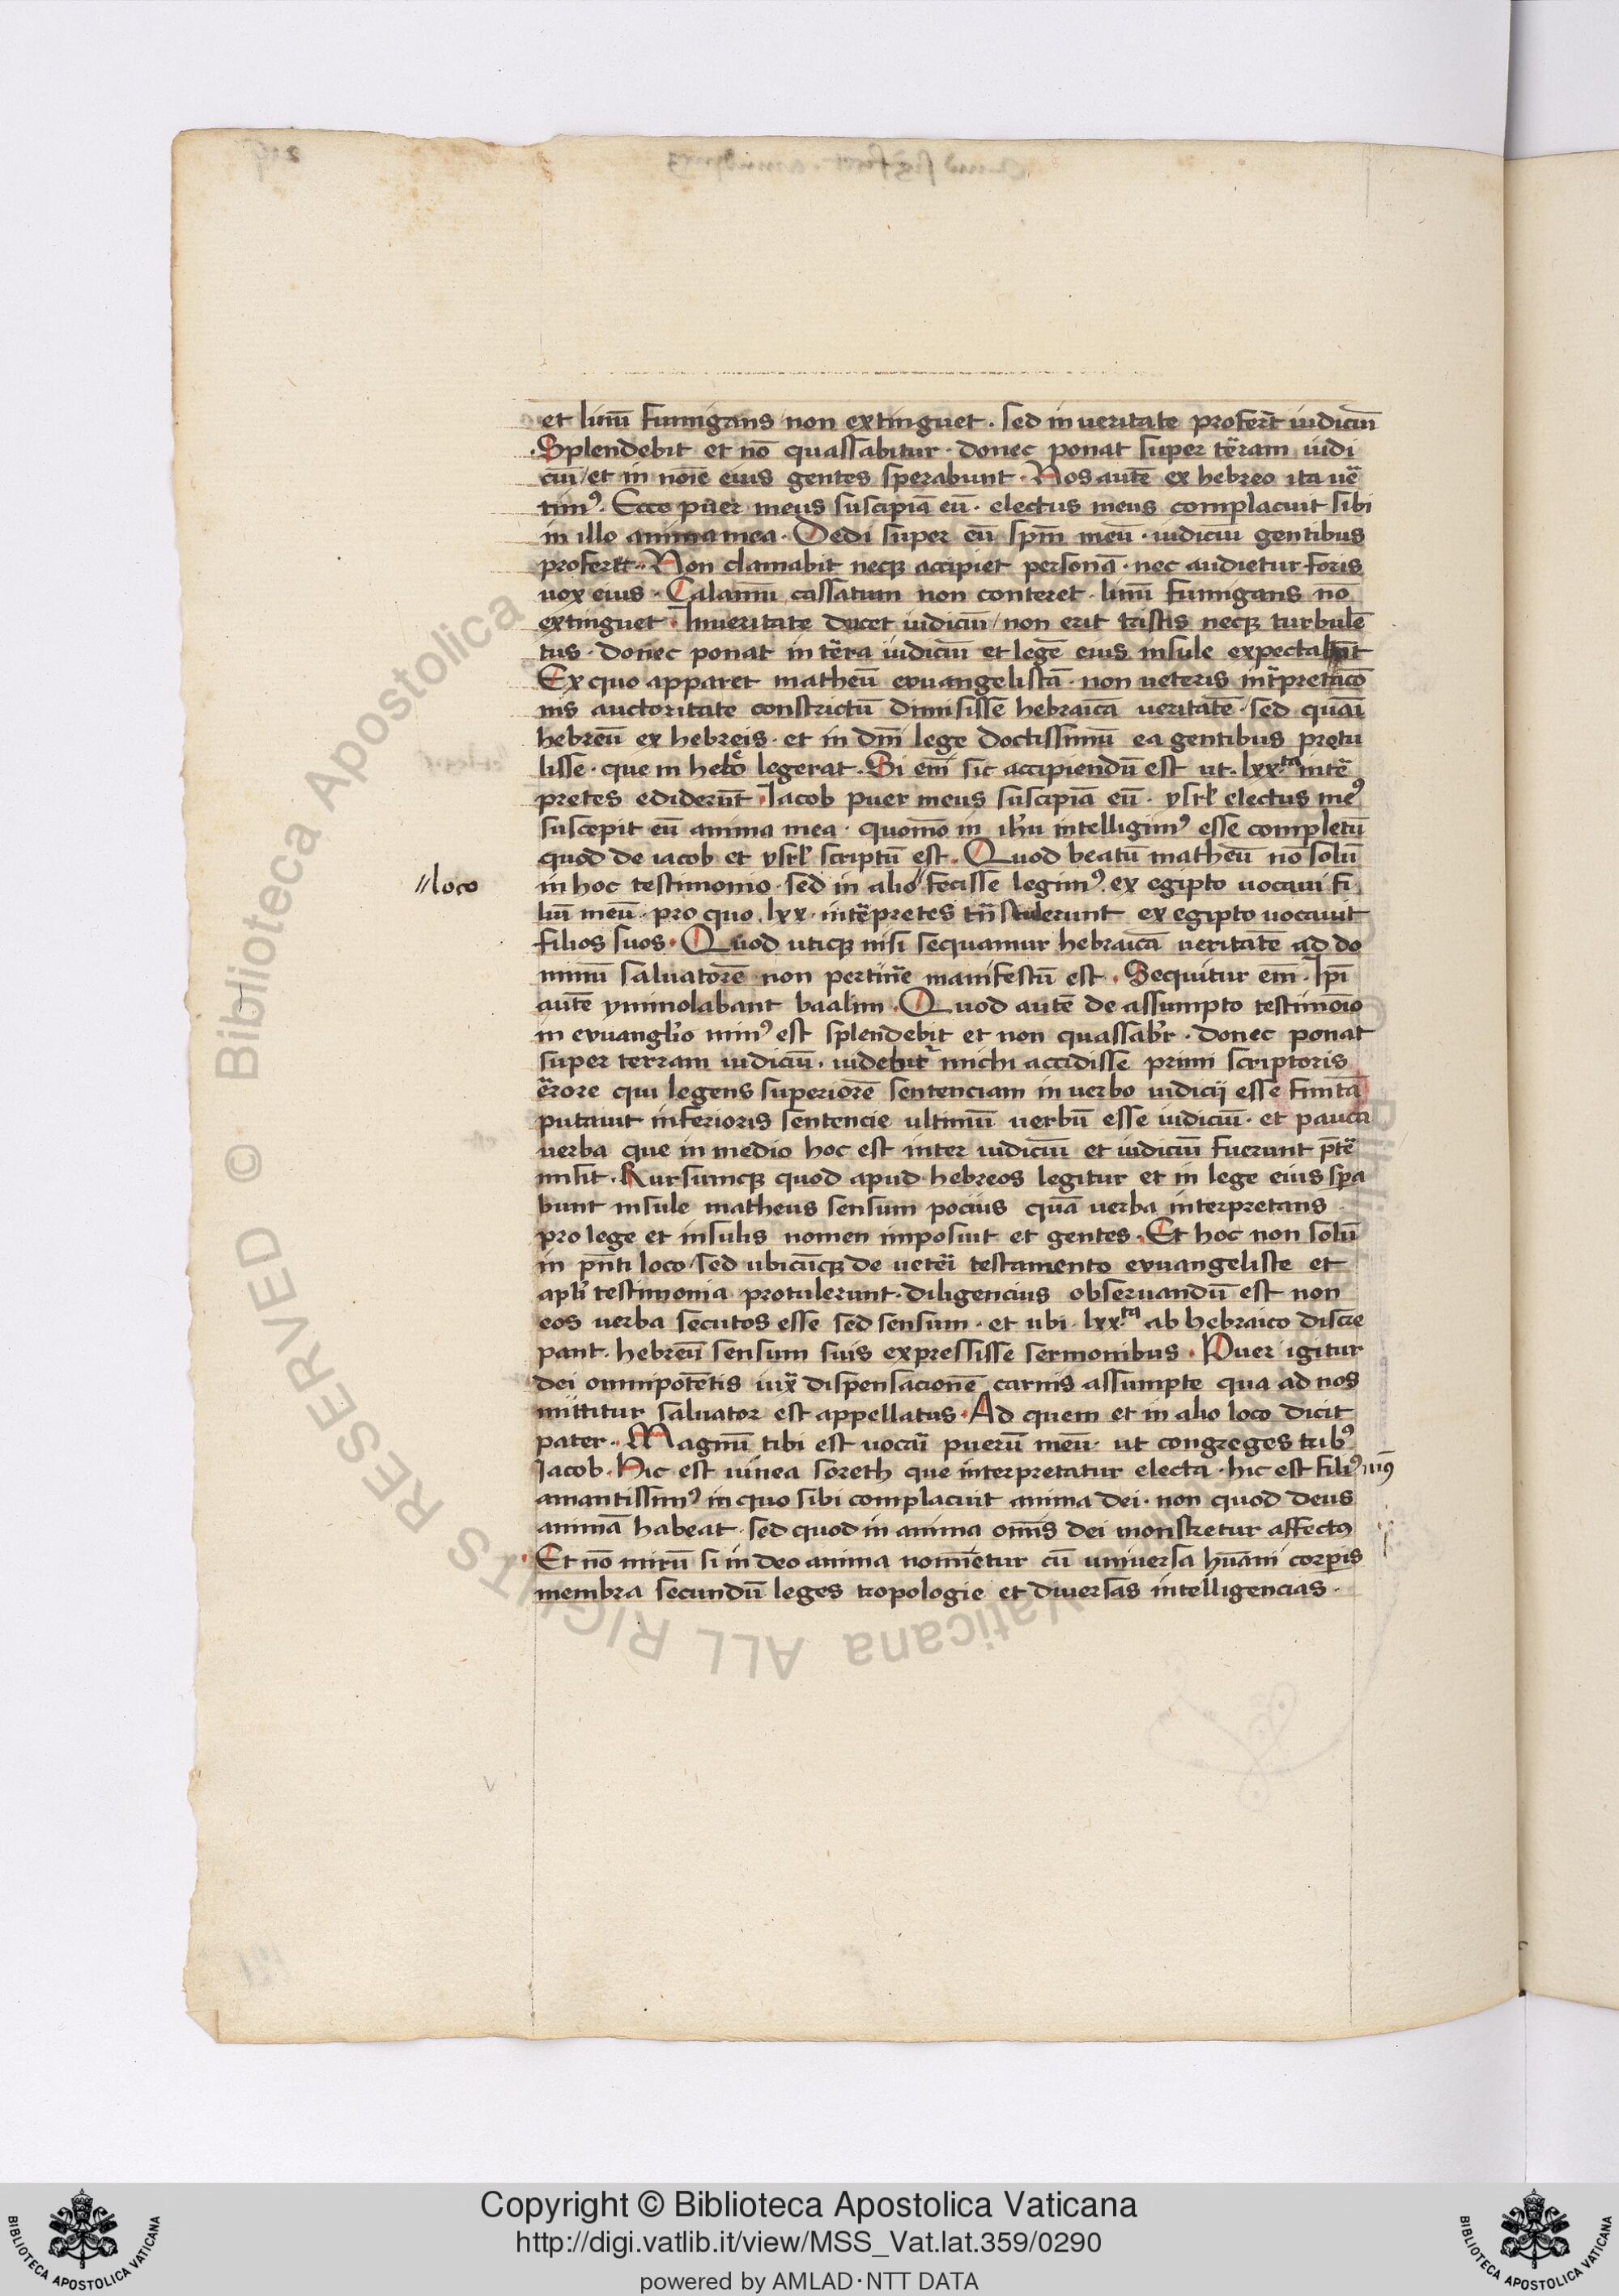 et linū fumigans non extinguet . sed in ueritate profert̄ iudiciū
Splendebit et nō quassabitur . donec ponat super t̄eram iudi
ciū / et in noīe eius gentes sperabunt . Nos autē ex hebreo ita ūe
timꝰ . Ecce puer meus suscipiā eū . electus meus complacuit sibi
in illo anima mea . Dedi super eū spm̄ meū . iudiciū gentibus
proferet . Non clamabit necꝫ accipiet personā . nec audietur foris
uox eius . Calamū cassatum non conteret . linū fumigans nō
extinguet . In ueritate ducet iudiciū / non erit tristis necꝫ turbulē
tus . donec ponat in t̄era iudiciū et legē eius insule expectabūt
Ex quo apparet matheū evuangelistā . non ueteris int̄pretacō
nis auctoritate constrictū dimisisse hebraicā ueritatē . sed quasi
hebreū ex hebreis . et in dm̄ lege doctissimū ea gentibus protu
lisse . que in hebō legerat . Si em̄ sic accipiendū est ut . lxx.ta int̄e
pretes ediderūt . Iacob puer meus suscipiā eū . ysrl̄ electus meꝰ
suscepit eū anima mea . quomō in ih̄u intelligimꝰ esse completū
quod de iacob et ysrl̄ scriptū est . Quod beatū matheū nō solū
//loco
in hoc testimonio . sed in alio // fecisse legimꝰ . ex egipto uocaui fi
liū meū . pro quo . lxx . int̄epretes tn̄stulerunt ex egipto uocauit
filios suos . Quod uticꝫ nisi sequamur hebraicā ueritatē ad do
minū saluatorē non pertin̄e manifestū est . Sequitur em̄ . Ip̄i
autē ymmolabant baalim . Quod autē de assumpto testimōio
in evuangl̄io minꝰ est splendebit et non quassabr̄ . donec ponat
super terram iudiciū . uidetur michi accidisse primi scriptoris
ērore qui legens superiorē sentenciam in uerbo iudicij esse finitā
putauit inferioris sentencie ultimū uerbū esse iudiciū . et pauca
uerba que in medio hoc est inter iudiciū et iudiciū fuerunt p̄tē
misit . Rursumcꝫ quod apud hebreos legitur et in lege eius sꝑa
bunt insule matheus sensum pocius quā uerba interpretans
pro lege et insulis nomen imposuit et gentes . Et hoc non solū
in pn̄ti loco / sed ubicūcꝫ de ueteri testamento evuangeliste et
apl̄i testimonia protulerunt . diligencius obseruandū est non
eos uerba secutos esse sed sensum . et ubi . lxx.ta ab hebraico discre
pant . hebreū sensum suis expressisse sermonibus . Puer igitur
dei omnipotētis iux̄ dispensacionē carnis assumpte qua ad nos
mittitur saluator est appellatus . Ad quem et in alio loco dicit
pater . Magnū tibi est uocari puerū meū . ut congreges tribꝰ
Iacob . Hic est uinea soreth que interpretatur electa . hic est filiꝰ
amantissimꝰ in quo sibi complacuit anima dei . non quod deus
animā habeat . sed quod in anima omīs dei monstretur affectꝰ
Et nō mirū si in deo anima nominetur cū uniuersa hūani corꝑis
membra secundū leges tropologie et diuersas intelligencias .
Biblioteca Apostolica Vaticana ALL RIGHTS RESERVED ©
Copyright © Biblioteca Apostolica Vaticana
http://digi.vatlib.it/view/MSS_Vat.lat.359/0290
powered by AMLAD·NTT DATA
BIBLIOTECA APOSTOLICA VATICANA
BIBLIOTECA APOSTOLICA VATICANA